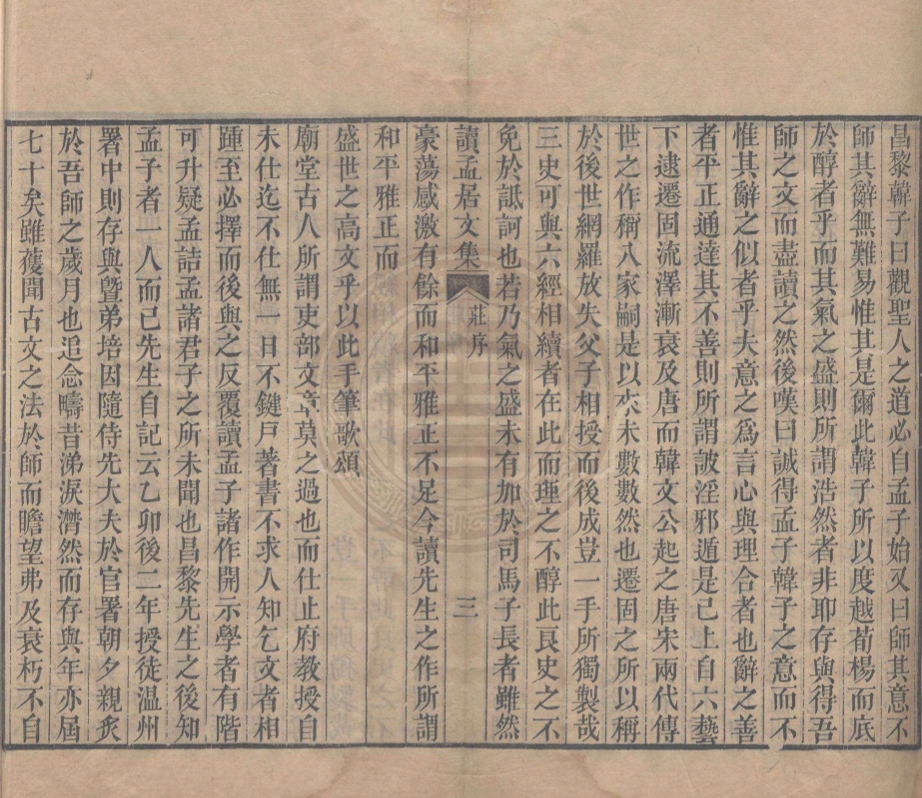 昌黎韓子曰觀聖人之道必自孟子始又曰師其意不
師其辭無難易惟其是爾此韓子所以度越荀楊而底
於醇者乎而其氣之盛則所謂浩然者非耶存與得吾
師之文而盡讀之然後嘆曰誠得孟子韓子之意而不
惟其辭之似者乎夫意之爲言心與理合者也辭之善
者平正通達其不善則所謂詖淫邪遁是已上自六藝
下逮遷固流澤漸衰及唐而韓文公起之唐宋兩代傳
世之作稱八家嗣是以來未數數然也遷固之所以稱
於後世網羅放失父子相授而後成豈一手所獨製哉
三史可與六經相續者在此而理之不醇此良史之不
免於詆訶也若乃氣之盛未有加於司馬子長者雖然
讀孟居文集
莊序
三
豪蕩感激有餘而和平雅正不足今讀先生之作所謂
和平雅正而
盛世之高文乎以此手筆歌頌
廟堂古人所謂吏部文章莫之過也而仕止府教授自
未仕迄不仕無一日不鍵戸著書不求人知乞文者相
踵至必擇而後與之反覆讀孟子諸作開示學者有階
可升疑孟詰孟諸君子之所未聞也昌黎先生之後知
孟子者一人而已先生自記云乙卯後二年授徒温州
署中則存與曁弟培因隨侍先大夫於官署朝夕親炙
於吾師之歲月也追念疇昔涕淚濳然而存與年亦屆
七十矣雖獲聞古文之法於師而瞻望弗及衰朽不自